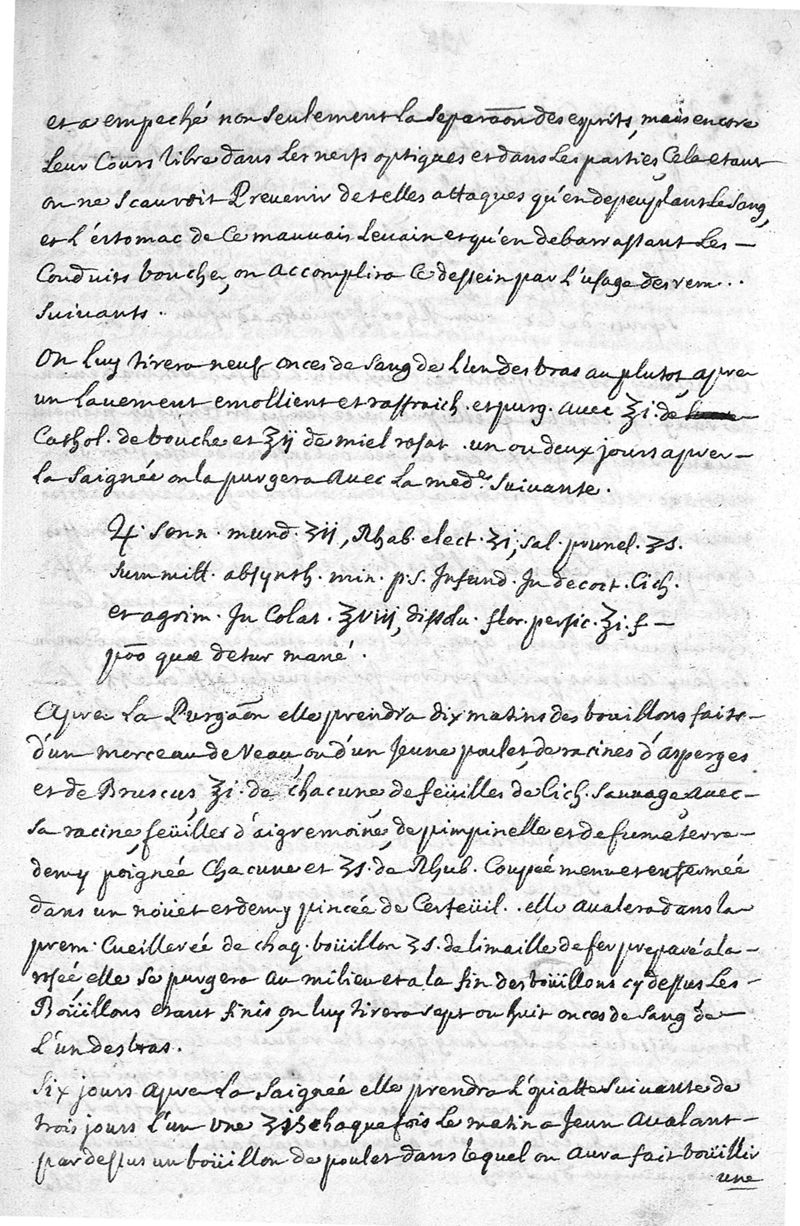 et a empeché non seulement la separãon des esprits, mais encore
Leur Cours libre dans Les nerfs optiques et dans Les parties, Cela etant
on ne scauroit Prevenir de telles attaques qu'en depeuplant Le sang,
et L'estomac de Ce mauvais Levain et qu'en debarrassant Les –
Conduits bouche, on accomplira Ce dessein par L'usage des rem...
suivants.
On Luy tirera neuf onces de sang de L'un des bras au plutot, apres
un Lavement emollient et raffraich. et purg. avec ʒi. de
Cathol. de bouche et ʒij de miel rosat. un ou deux jours apres –
la saignée on la purgera avec La med.e suivante.
♃. senn. mund. ʒij, Rhab. elect. ʒi, sal. prunel. ʒs.
summitt. absynth. min. p.s. Infund. In decoct. Cich.
et agrim. In Colat. ʒviij, dissolu. flor. persic. ʒi. f –
põo quæ detur mané.
Apres La Purgãon elle prendra dix matins des bouillons faits –
d'un morceau de Veau, ou d'un Jeune poulet, de racines d'asperges
et de Bruscus, ʒi. de chacune, de feüilles de Cich. sauvage avec –
sa racine, feüilles d'aigremoine, de pimpinelle et de fumeterre –
demy poignée Chacune et ʒs. de Rhub. Coupée menu et enfermée
dans un noüet et demy pincée de Cerfeüil.. elle avalera dans la
prem. Cueillereé de chaq. boüillon ʒs. de limaille de fer preparé a la –
rosée, elle se purgera au milieu et a la fin des boüillons cy dessus Les –
Boüillons etant finis, on luy tirera sept ou huit onces de sang de –
L'un des bras.
Six jours apres La Saignée elle prendra L'opiatte suivante de
trois jours L'un une ʒis chaque fois Le matin a Jeun avalant –
par dessus un boüillon de poulet dans lequel on aura fait boüillir
une